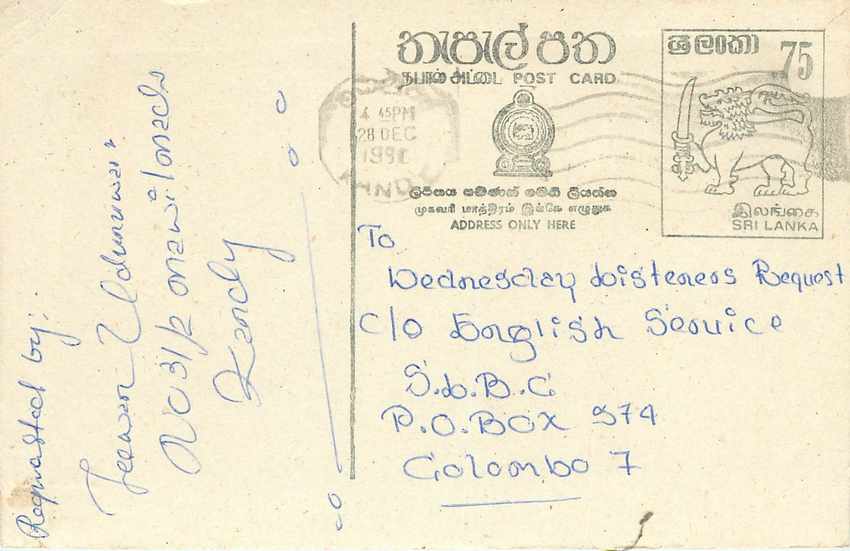 තැපැල් පත
தபால் அட்டை POST CARD
ශ්‍රී ලංකා 75
இலங்கை
SRI LANKA
4 45PM
28 DEC
ලිපිනය පමණක් මෙහි ලියන්න
முகவரி மாத்திரம் இங்கே எழுதுக
ADDRESS ONLY HERE
To
Wednesday Listeners Request
C/o English Service
S.L.B.C
P.O. BOX 574
Colombo 7
Requested by:
Jeewan
No 31/2
Kandy